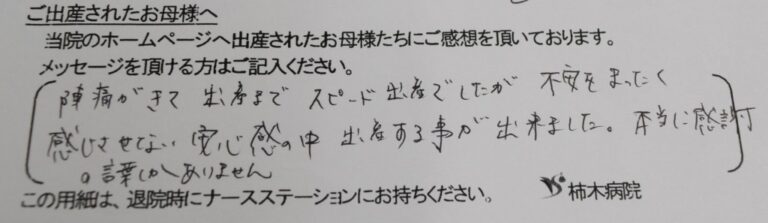 ご出産されたお母様へ
当院のホームページへ出産されたお母様たちにご感想を頂いております。
メッセージを頂ける方はご記入ください。
陣痛がきて 出産まで スピード出産でしたが 不安をまったく
感じさせない 安心感の中 出産する事が出来ました。 本当に感謝
の言葉しかありません
この用紙は、退院時にナースステーションにお持ちください。 柿木病院